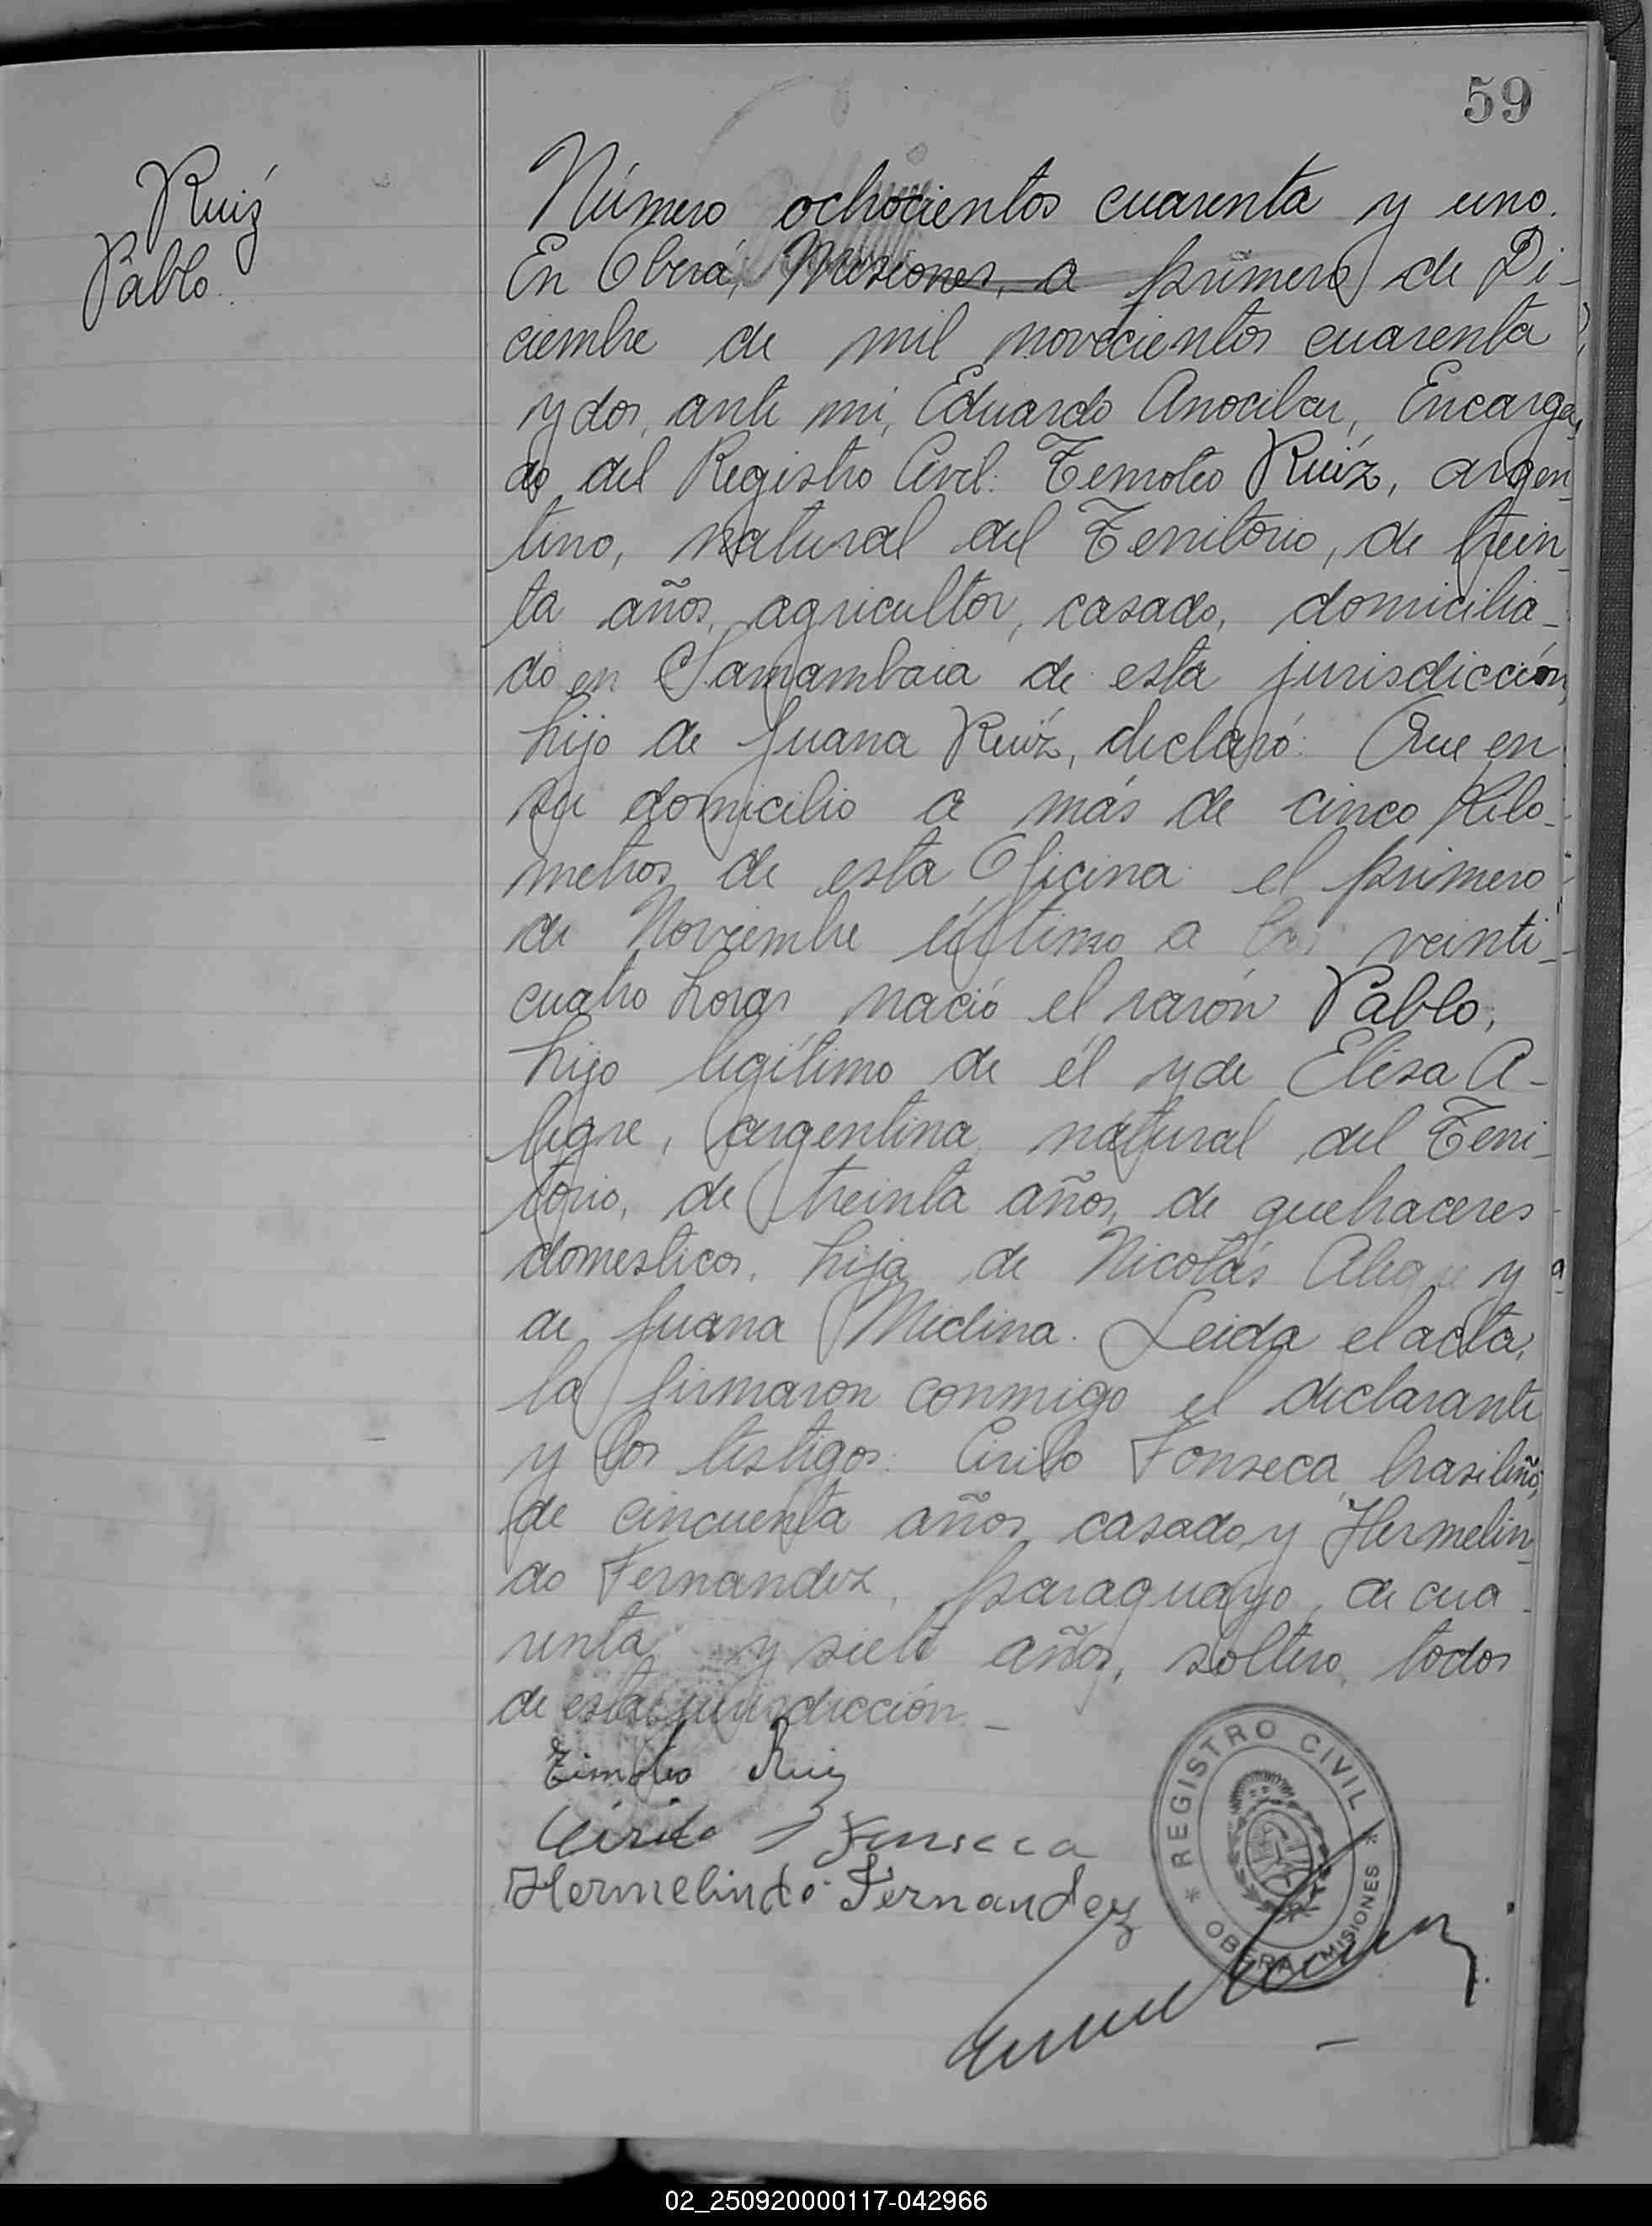 59
Ruíz
Pablo.
Número ochocientos cuarenta y uno.
En Oberá, Misiones, a primero de Di-
ciembre de mil novecientos cuarenta
y dos, ante mi, Eduardo Anocibar, Encarga-
do del Registro Civil: Temoteo Ruíz, argen-
tino, natural del Territorio, de trein-
ta años, agricultor, casado, domicilia-
do en Samambaia de esta jurisdicción,
hijo de Juana Ruíz, declaró: Que en
su domicilio a más de cinco Kilo-
metros de esta Oficina el primero
de Noviembre último a las veinti-
cuatro horas nació el varón Pablo,
hijo legítimo de él y de Elisa A-
legre, argentina, natural del Terri-
torio, de treinta años, de quehaceres
domesticos, hija de Nicolás Alegre y
de Juana Medina. Leida el acta,
la firmaron conmigo el declarante
y los testigos: Cirilo Fonseca, brasileño,
de cincuenta años, casado y Hermelin-
do Fernandez, paraguayo, de cua-
renta y siete años, soltero, todos
de esta jurisdicción. -
Timoteo Ruiz
Cirilo Fonseca
Hermelindo Fernandez
REGISTRO CIVIL
OBERA MISIONES
02_250920000117-042966